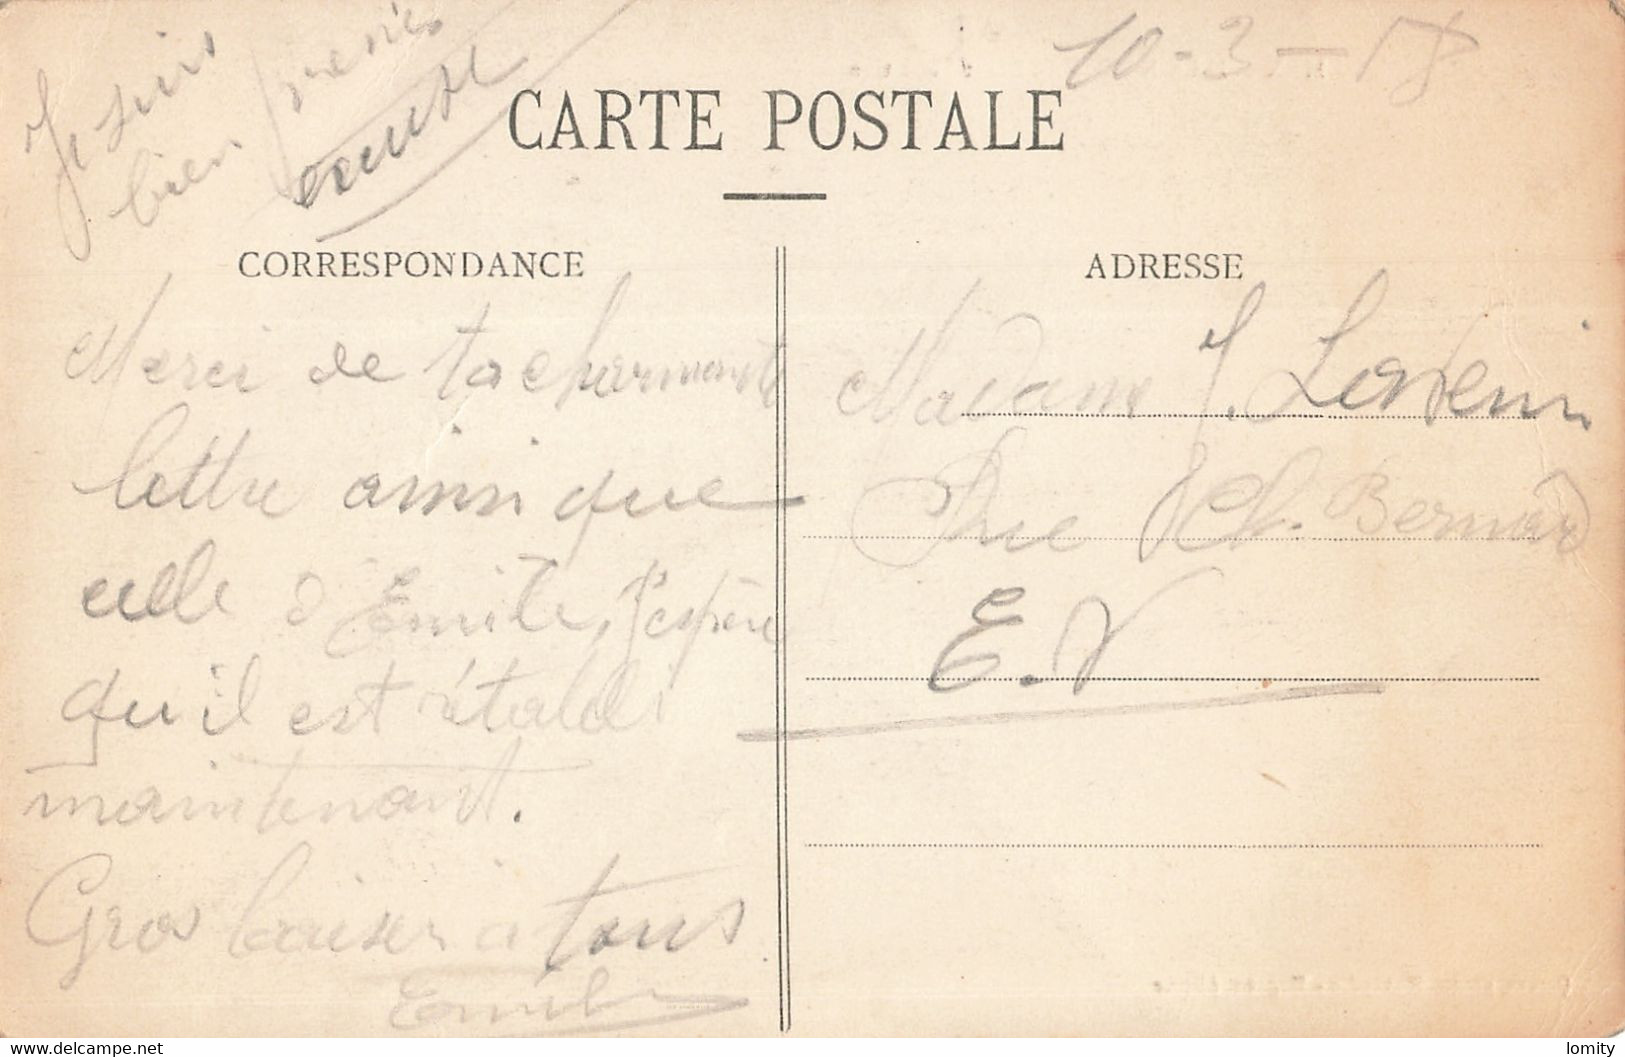 10-3-18
Je suis
bien
CARTE POSTALE
CORRESPONDANCE
Merci de ta charmante
lettre ainsi que
celle d'Emile, J'espère
qu'il est rétabli
maintenant.
Gros baiser à tous
Emile
ADRESSE
Madame J.
Rue Ch. Bernard
E.V
delcampe.net
lomity